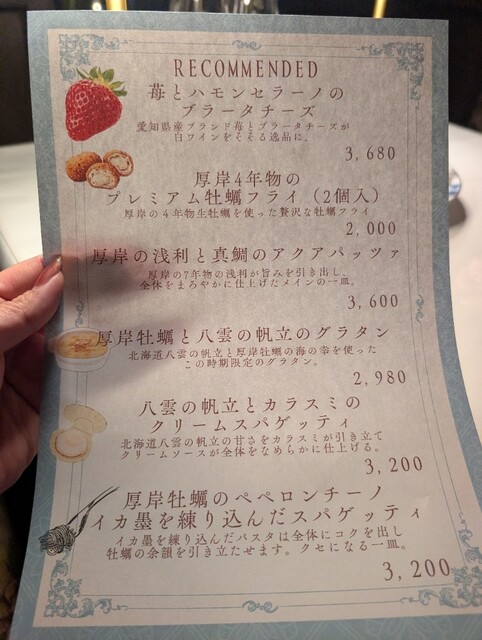 RECOMMENDED
苺とハモンセラーノの
ブラータチーズ
愛知県産ブランド苺とブラータチーズが
白ワインをそそる逸品に。
3,680
厚岸4年物の
プレミアム牡蠣フライ（2個入）
厚岸の4年物生牡蠣を使った贅沢な牡蠣フライ
2,000
厚岸の浅利と真鯛のアクアパッツァ
厚岸の7年物の浅利が旨みを引き出し、
全体をまろやかに仕上げたメインの一皿。
3,600
厚岸牡蠣と八雲の帆立のグラタン
北海道八雲の帆立と厚岸牡蠣の海の幸を使った
この時期限定のグラタン。
2,980
八雲の帆立とカラスミの
クリームスパゲッティ
北海道八雲の帆立の甘さをカラスミが引き立て
クリームソースが全体をなめらかに仕上げる。
3,200
厚岸牡蠣のペペロンチーノ
イカ墨を練り込んだスパゲッティ
イカ墨を練り込んだパスタは全体にコクを出し
牡蠣の余韻を引き立たせます。クセになる一皿。
3,200